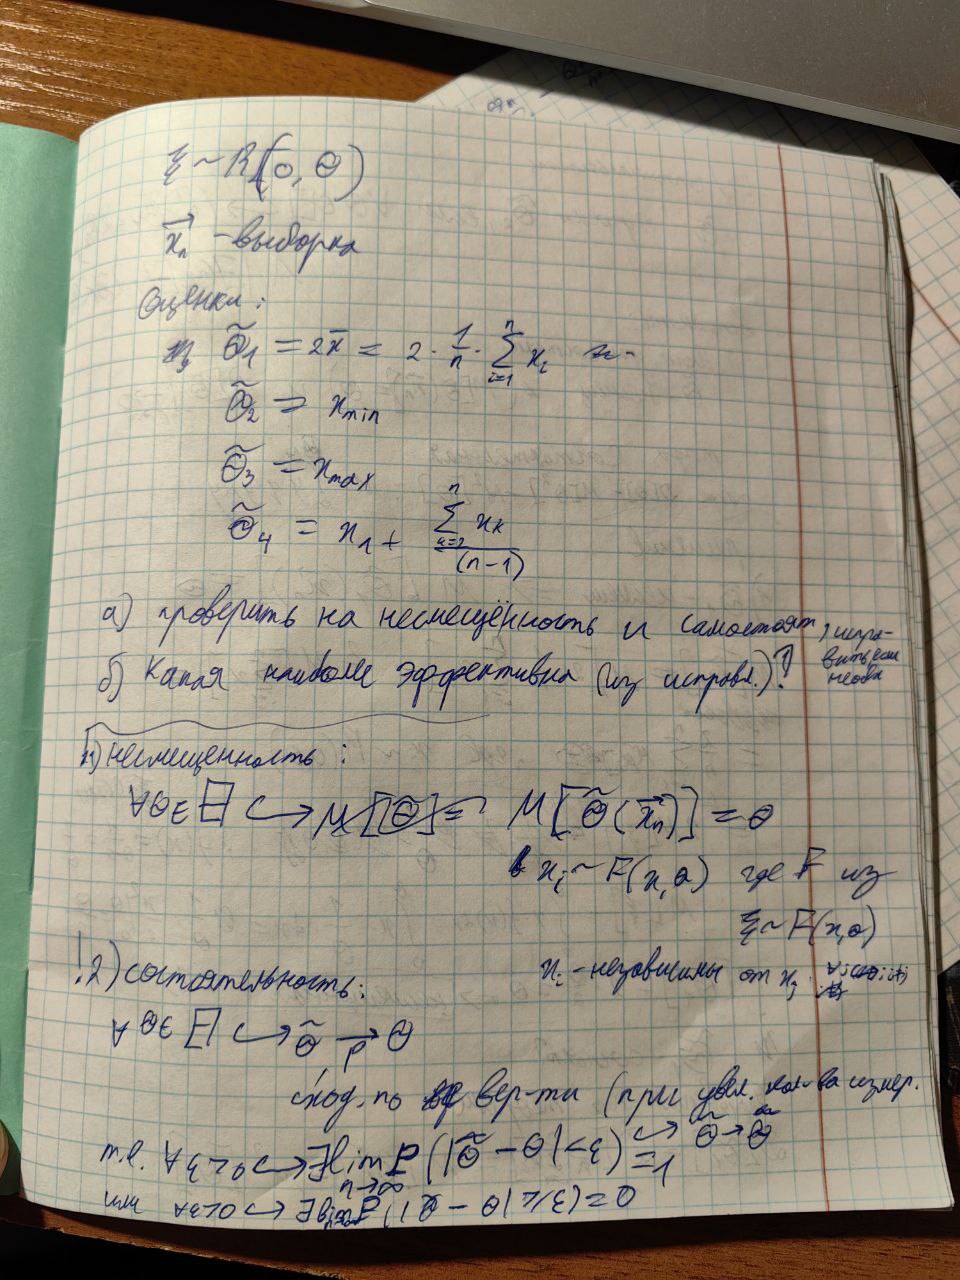 ξ ~ R(0, Θ)
x⃗ₙ - выборка
Оценки:
Θ̃₁ = 2x̄ = 2 · 1/n · Σᵢ₌₁ⁿ xᵢ
Θ̃₂ = xₘᵢₙ
Θ̃₃ = xₘₐₓ
Θ̃₄ = x₁ + Σₖ₌₂ⁿ xₖ / (n-1)
а) проверить на несмещённость и самостоят, испра-
вить если
необх
б) Какая наиболе эффективна (из исправл.)?
1) несмещенность:
∀Θ∈ ↪ M[Θ̃(x⃗ₙ)] = Θ
xᵢ ~ F(x,Θ) где F из
ξ ~ F(x,Θ)
xᵢ - независимы от xⱼ
! 2) состоятельность:
∀Θ∈ ↪ Θ̃ →ᵖ Θ
сход. по вер-ти (при увел. кол-ва измер.
Θ̃ → Θ
т.е. ∀ε>0 ↪ ∃ lim n→∞ P(|Θ̃ - Θ|<ε) = 1
или ∀ε>0 ↪ ∃ lim P(|Θ̃ - Θ|≥ε) = 0